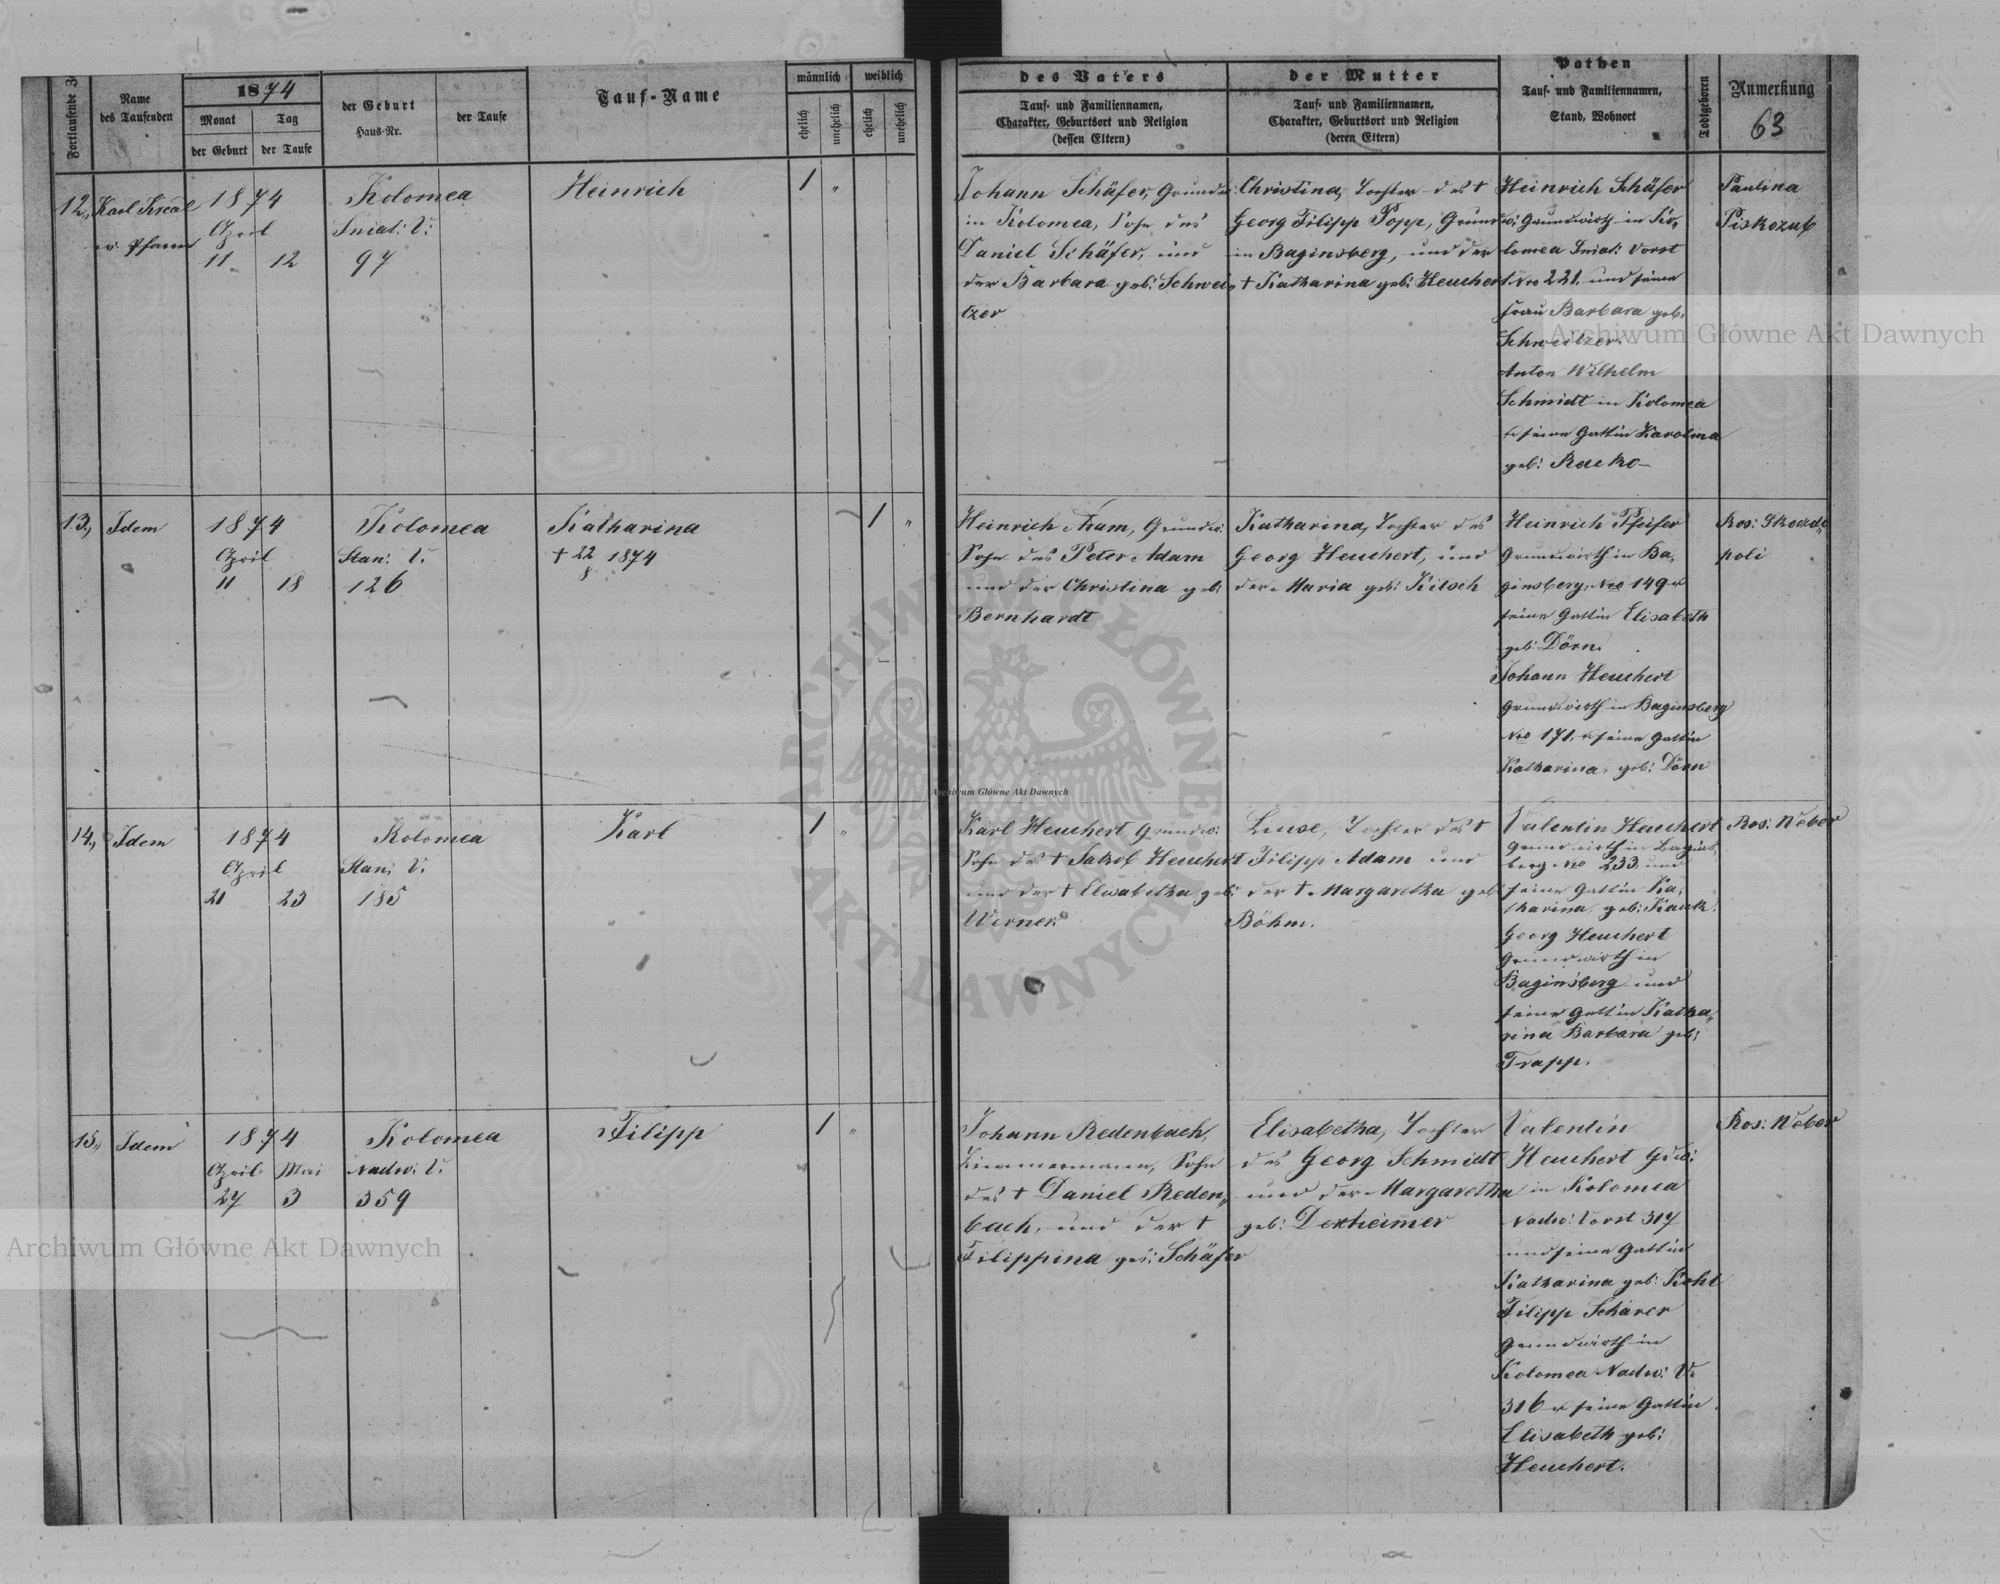 Fortlaufende
Name
des Taufenden
1874
Monat
Tag
der Geburt
der Taufe
der Geburt
Haus-Nr.
der Taufe
Tauf-Name
männlich
weiblich
ehelich
unehelich
ehelich
unehelich
des Vaters
Tauf- und Familiennamen,
Charakter, Geburtsort und Religion
(dessen Eltern)
der Mutter
Tauf- und Familiennamen,
Charakter, Geburtsort und Religion
(deren Eltern)
Pathen
Tauf- und Familiennamen,
Stand, Wohnort
Todtgeboren
Anmerkung
63
12., Karl Kreal
ev. Pfarrer
1874
April
11 12
Kolomea
Sniat: V:
97
Heinrich
1 "
Johann Schäfer, Grundw:
in Kolomea, Sohn des
Daniel Schäfer, und
der Barbara geb: Schwei„
tzer
Christina, Tochter des †
Georg Filipp Popp, Grundw:
in Baginsberg, und der
† Katharina geb: Heuchert
Heinrich Schäfer
Grundwirth in Ko„
lomea Sniat: Vorst
Nro 221. und seine
Frau Barbara geb:
Schweitzer.
Anton Wilhelm
Schmidt in Kolomea
u. seine Gattin Karolina
geb: Racko
Paulina
Piskozub
13., Idem
1874
April
11 18
Kolomea
Stan: V.
126
Katharina
† 22/8 1874
1 "
Heinrich Adam, Grundw:
Sohn des Peter Adam
und der Christina geb:
Bernhardt
Katharina, Tochter des
Georg Heuchert, und
der Maria geb: Kitsch
Heinrich Pfeifer
Grundwirth in Ba„
ginsberg, Nro 149 u
seine Gattin Elisabeth
geb: Dörn.
Johann Heuchert
Grundwirth in Baginsberg
Nro 171. u seine Gattin
Katharina, geb: Dörn
Ros:
poli
14., Idem
1874
April
21 23
Kolomea
Stan: V.
185
Karl
1 "
Karl Heuchert, Grundw:
Sohn des † Jakob Heuchert
und der † Elisabetha geb:
Werner.
Luise, Tochter des †
Filipp Adam und
der † Margaretha geb:
Böhm.
Valentin Heuchert
Grundwirth in Bagins„
berg Nro 233. und
seine Gattin Ka„
tharina, geb: Kauk.
Georg Heuchert
Grundwirth in
Baginsberg und
seine Gattin Katha„
rina Barbara geb:
Trapp.
Ros: Weber
15., Idem
1874
April Mai
27 3
Kolomea
Nadw: V.
359
Filipp
1 "
Johann Redenbach,
Zimmermann, Sohn
des † Daniel Reden„
bach, und der †
Filippina geb: Schäfer
Elisabetha, Tochter
des Georg Schmidt
und der Margaretha
geb: Dexheimer
Valentin
Heuchert Gdw:
in Kolomea
Nadw: Vorst 317
und seine Gattin
Katharina geb: Kohl
Filipp Scharer
Grundwirth in
Kolomea Nadw: V.
316 u seine Gattin
Elisabeth geb:
Heuchert.
Ros: Weber
Archiwum Główne Akt Dawnych
Archiwum Główne Akt Dawnych
Archiwum Główne Akt Dawnych
ARCHIWUM GŁÓWNE AKT DAWNYCH